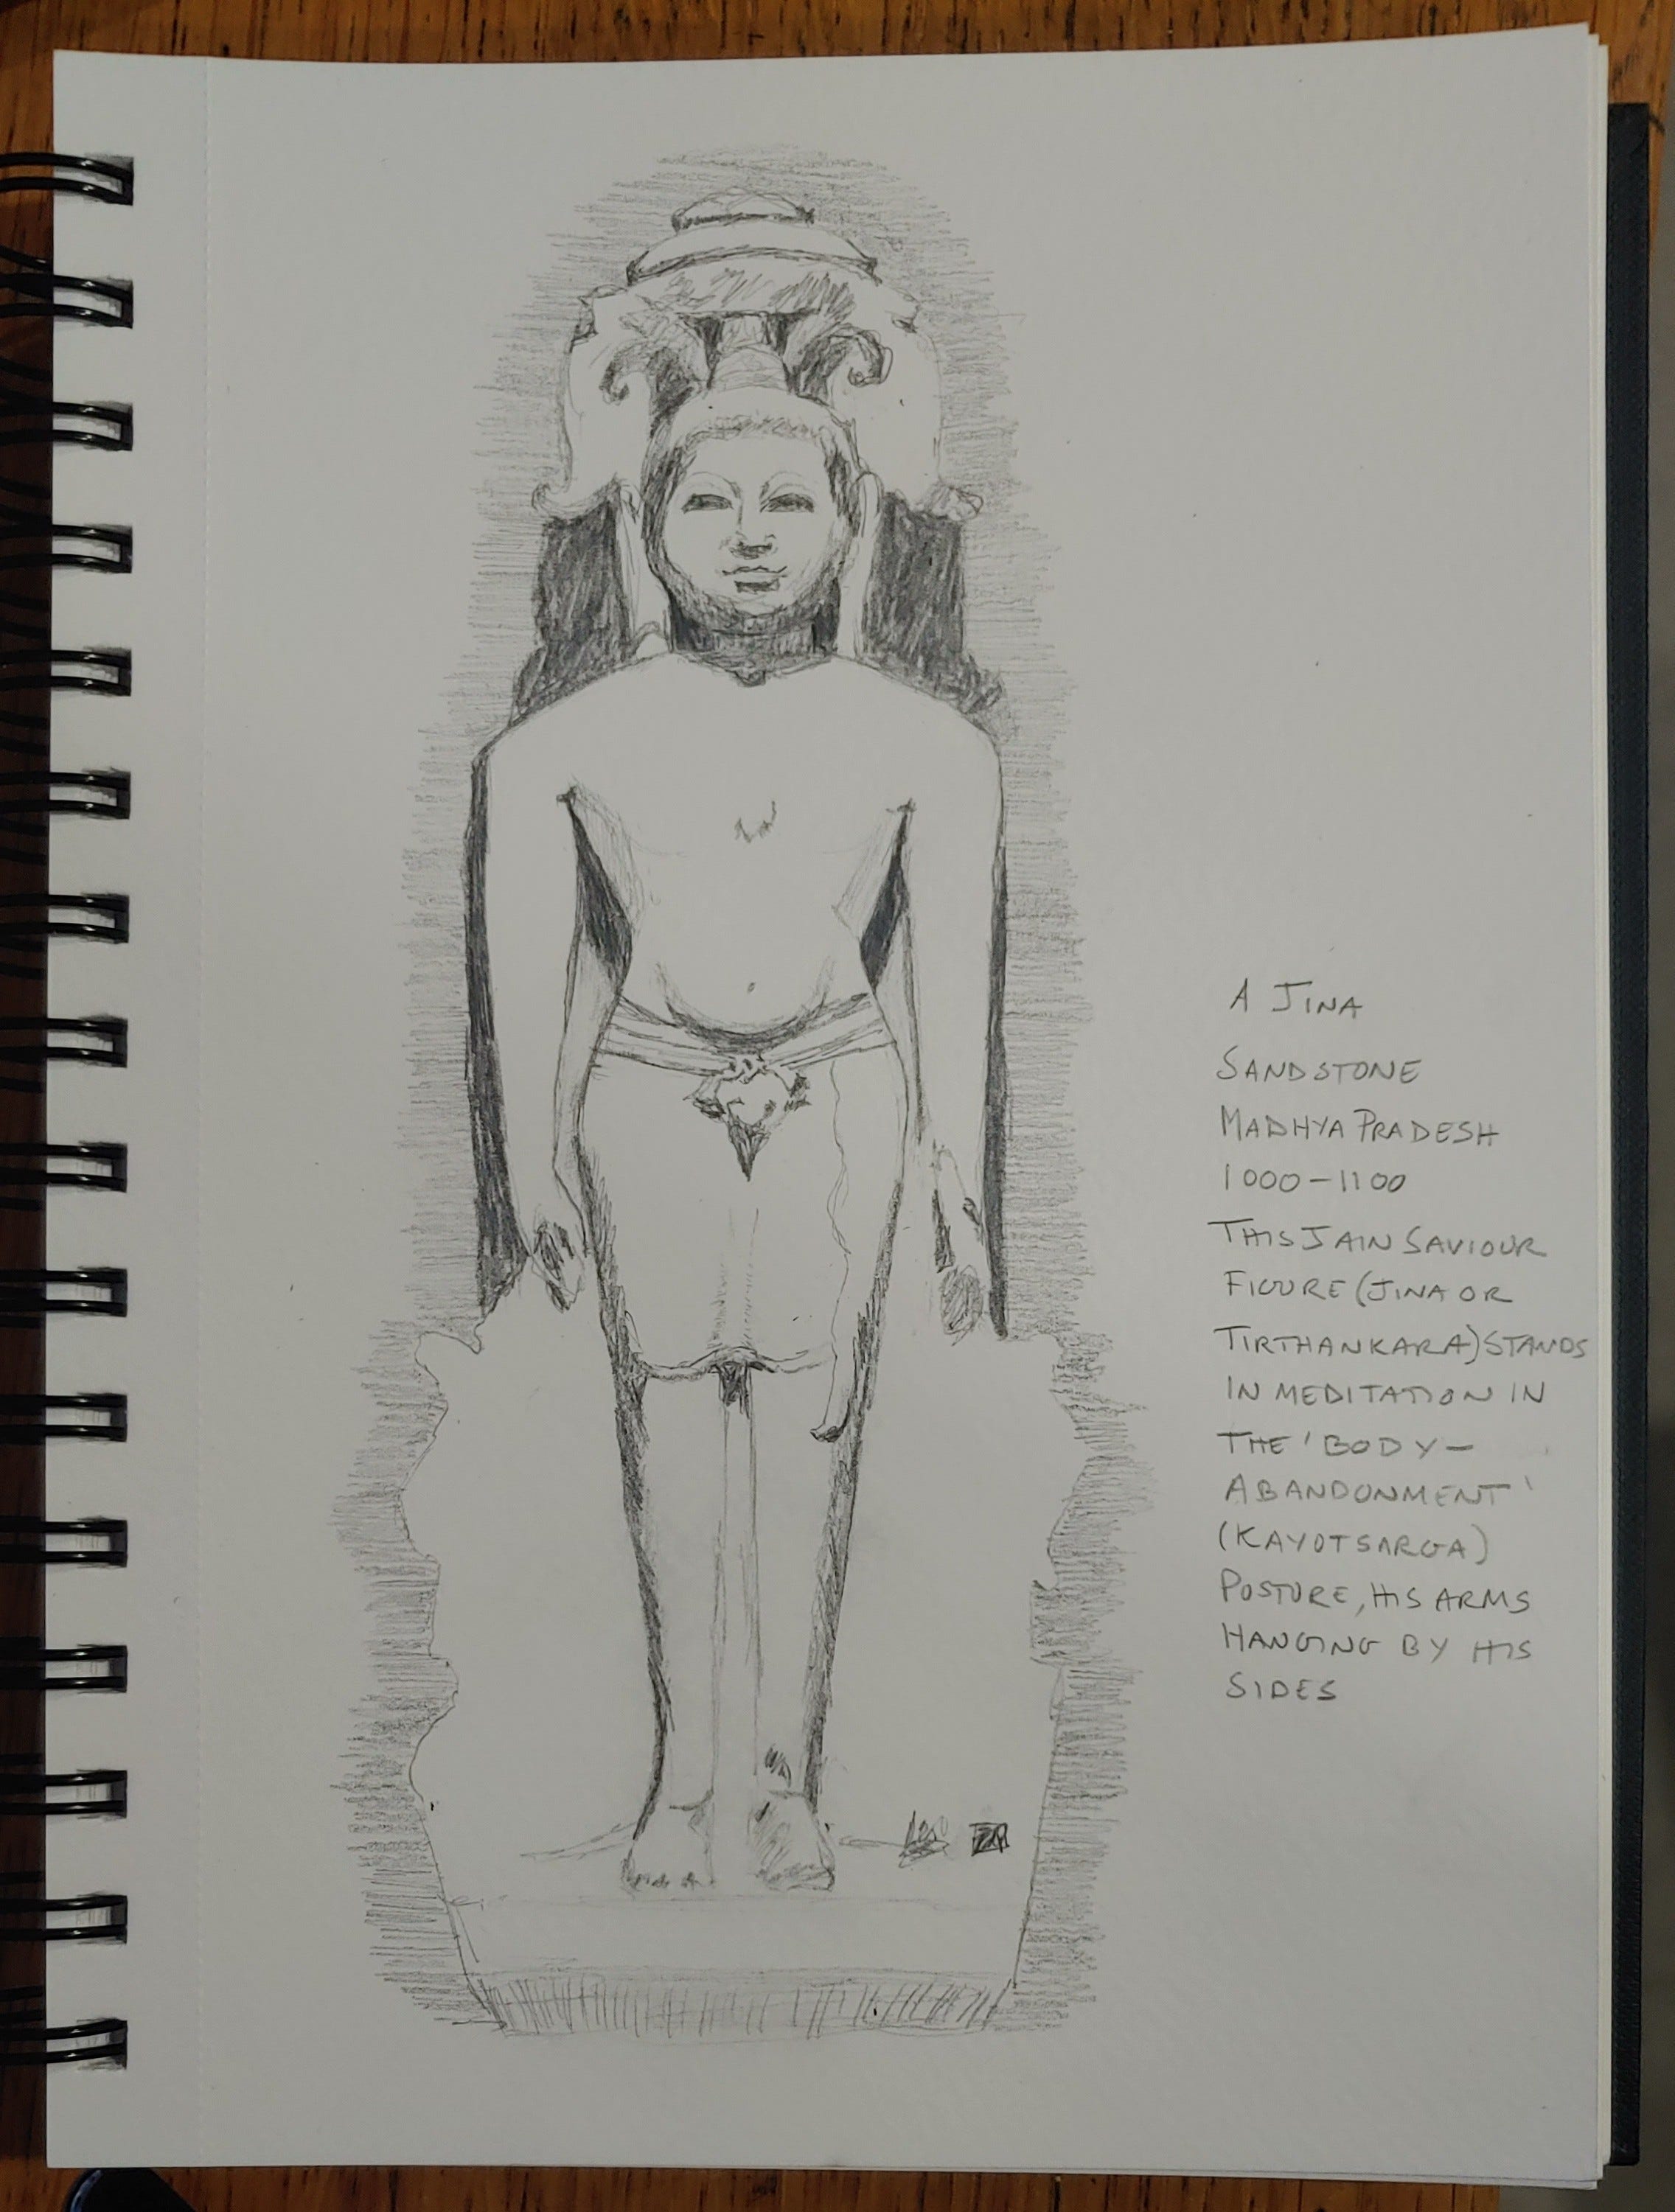 A JINA
SANDSTONE
MADHYA PRADESH
1000-1100
THIS JAIN SAVIOUR
FIGURE (JINA OR
TIRTHANKARA) STANDS
IN MEDITATION IN
THE 'BODY-
ABANDONMENT'
(KAYOTSARGA)
POSTURE, HIS ARMS
HANGING BY HIS
SIDES